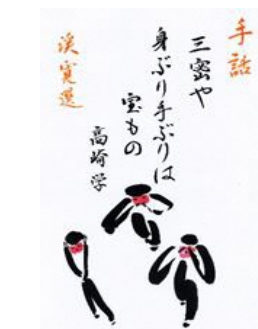 手話
三密や
身ぶり手ぶりは
宝もの
高崎学
渓寛選